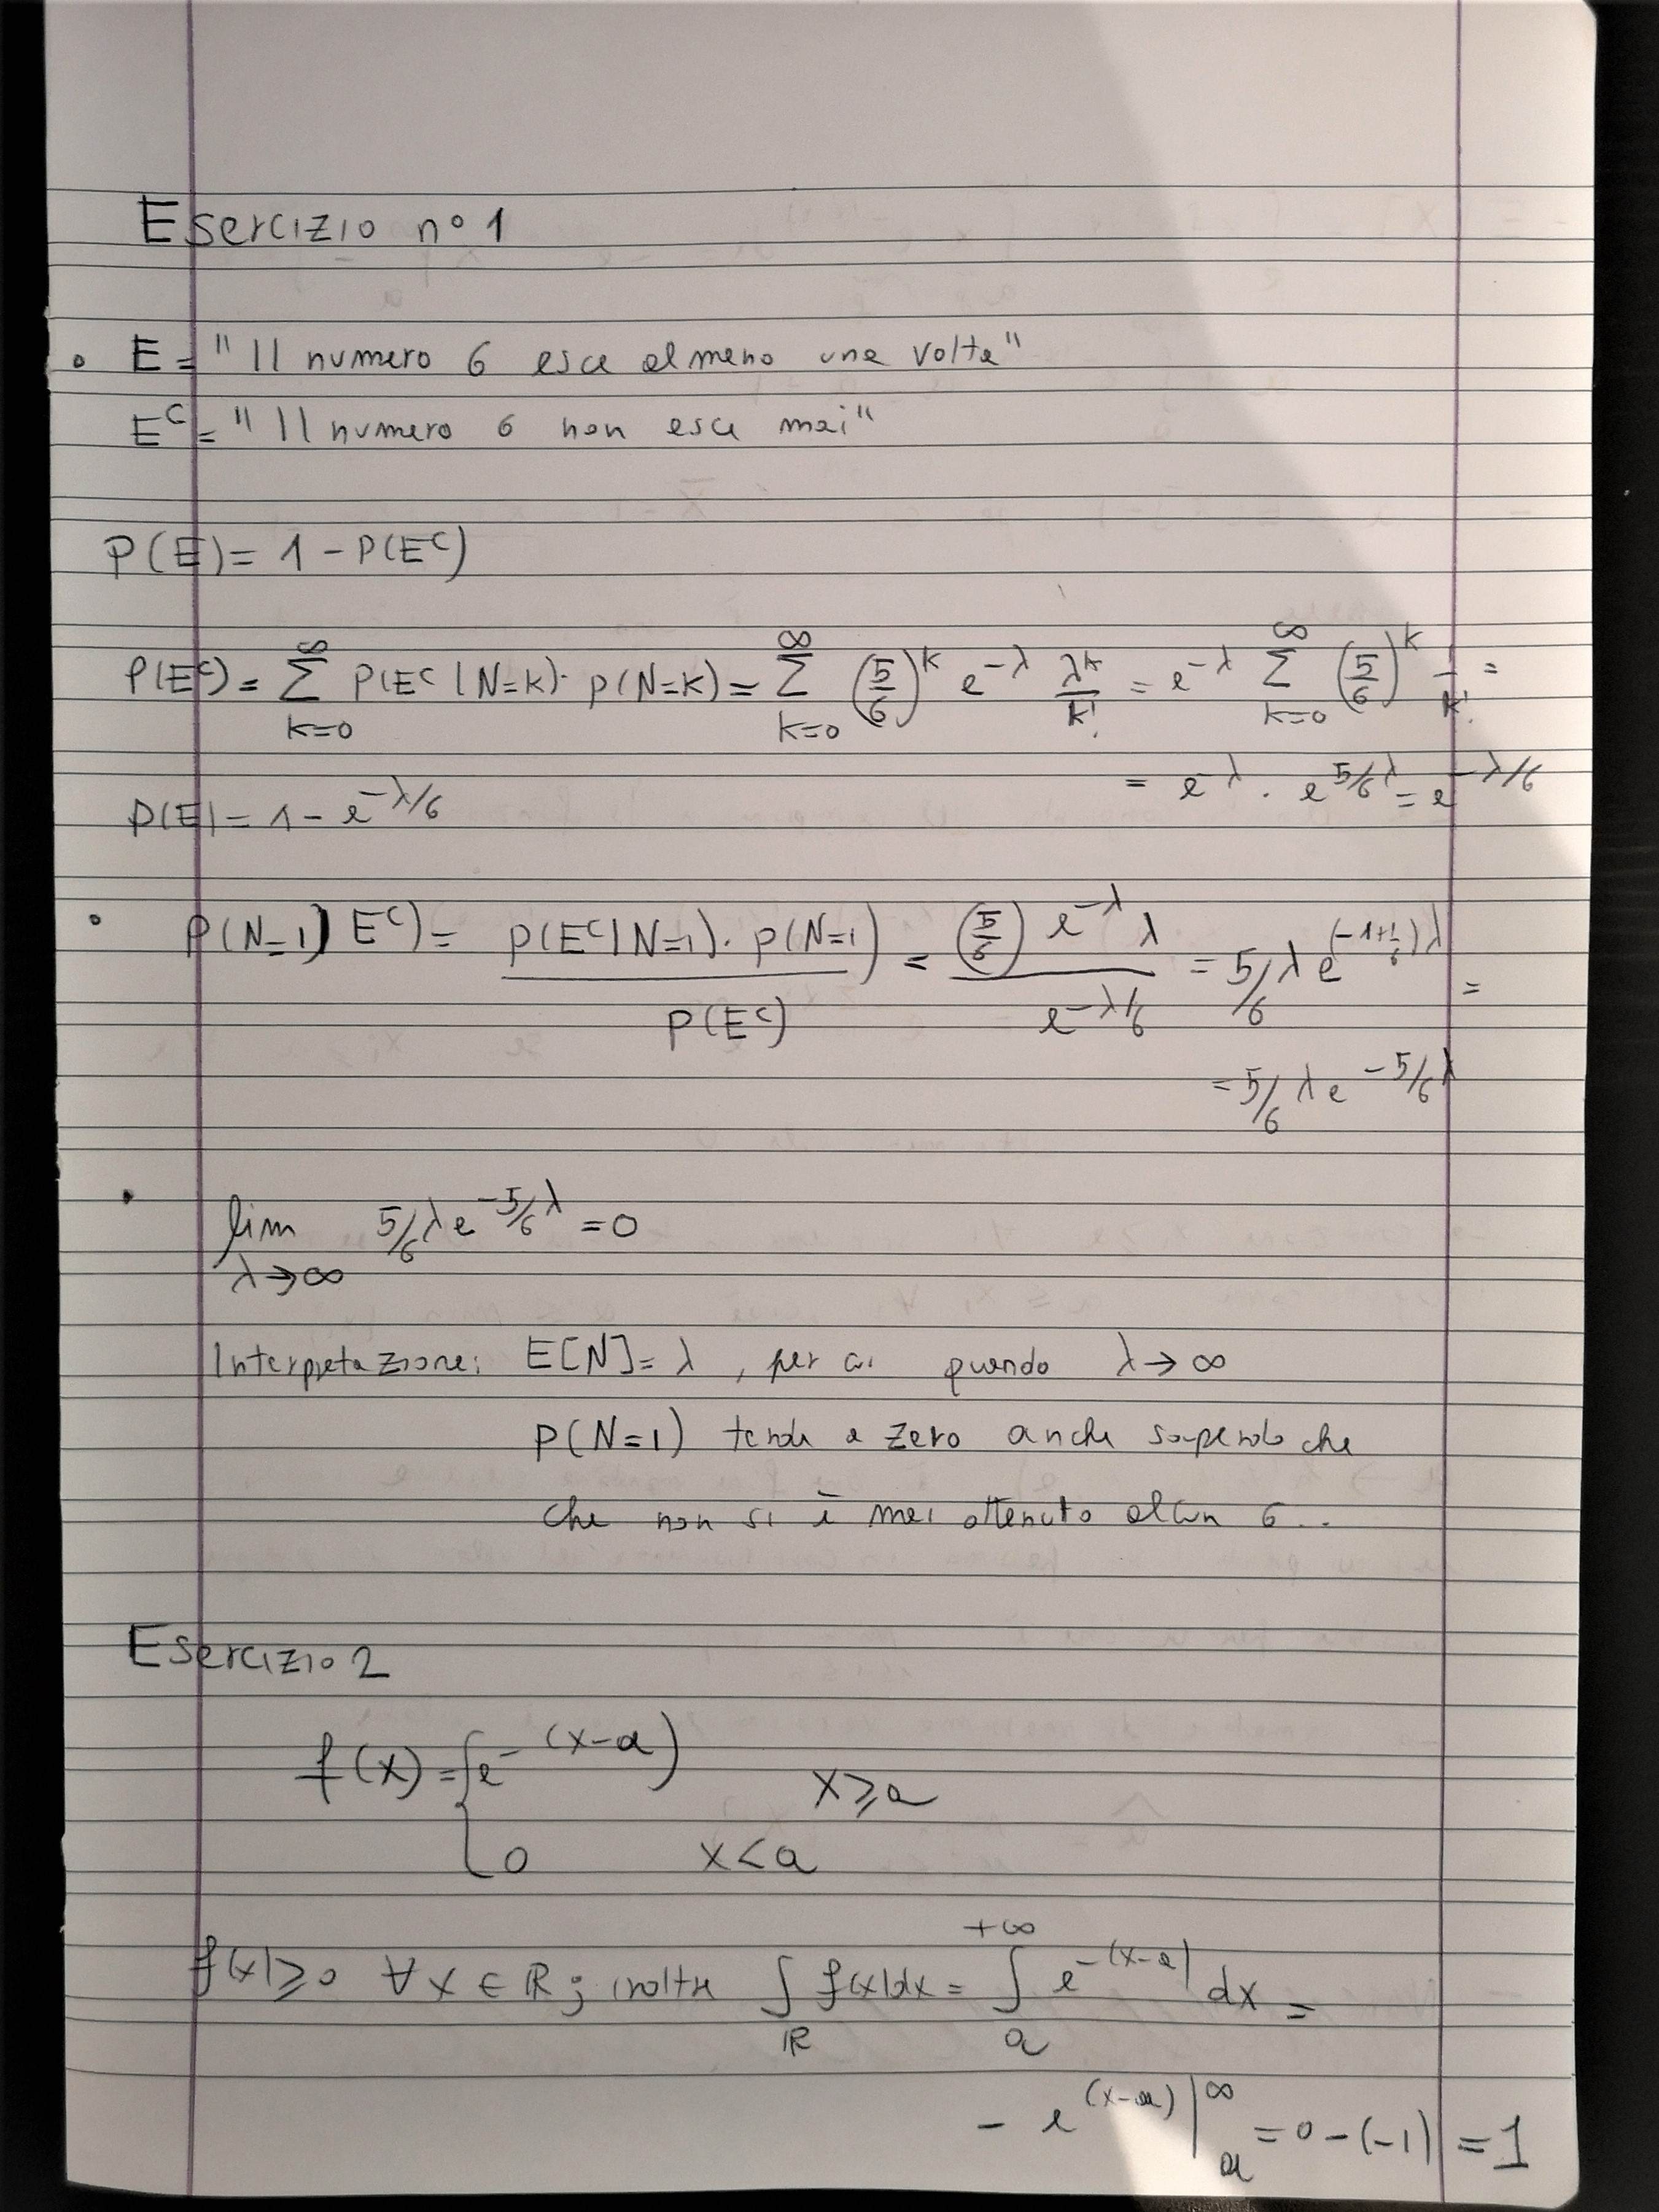 Esercizio n° 1
• E = "Il numero 6 esce almeno una volta"
E^C = "Il numero 6 non esce mai"
P(E) = 1 - P(E^C)
P(E^C) = ∑_{k=0}^{∞} P(E^C | N=k) · P(N=k) = ∑_{k=0}^{∞} (5/6)^k e^{-λ} λ^k/k! = e^{-λ} ∑_{k=0}^{∞} (5/6)^k 1/k! =
= e^{-λ} · e^{5/6 λ} = e^{-λ/6}
P(E) = 1 - e^{-λ/6}
• P(N=1 | E^C) = P(E^C | N=1) · P(N=1) / P(E^C) = (5/6) e^{-λ} λ / e^{-λ/6} = 5/6 λ e^{(-1+1/6)λ} =
= 5/6 λ e^{-5/6 λ}
• lim_{λ→∞} 5/6 λ e^{-5/6 λ} = 0
Interpretazione: E[N] = λ, per cui quando λ → ∞
P(N=1) tende a zero anche sapendo che
che non si è mai ottenuto alcun 6..
Esercizio 2
f(x) = { e^{-(x-a)} x ≥ a
0 x < a
f(x) ≥ 0 ∀ x ∈ ℝ ; inoltre ∫_ℝ f(x) dx = ∫_a^{+∞} e^{-(x-a)} dx =
- e^{(x-a)} |_a^∞ = 0 - (-1) = 1